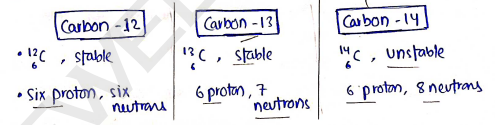 Carbon-12
• ¹²₆C, stable
• Six proton, six
neutrons
Carbon-13
¹³₆C, stable
6 proton, 7
neutrons
Carbon-14
¹⁴₆C, unstable
6 proton, 8 neutrons